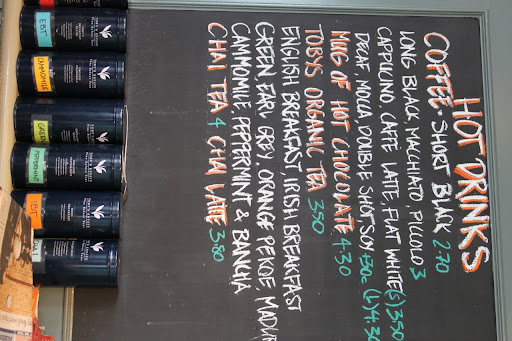 HOT DRINKS
COFFEE - SHORT BLACK 2.70
LONG BLACK, MACCHIATO, PICCOLO 3
CAPPUCINO, CAFFE LATTE, FLAT WHITE (S) 3.50
DECAF, MOCCA, DOUBLE SHOT, SOY, +50c (L) 4.30
MUG OF HOT CHOCOLATE 4.30
TOBYS ORGANIC TEA 3.50
ENGLISH BREAKFAST, IRISH BREAKFAST
GREEN, EARL GREY, ORANGE PEKOE, MADUR
CAMMOMILE, PEPPERMINT & BANCHA
CHAI TEA 4 CHAI LATTE 3.80
EBT
CAMOMILE
GREEN
PEPPERMINT
IBT